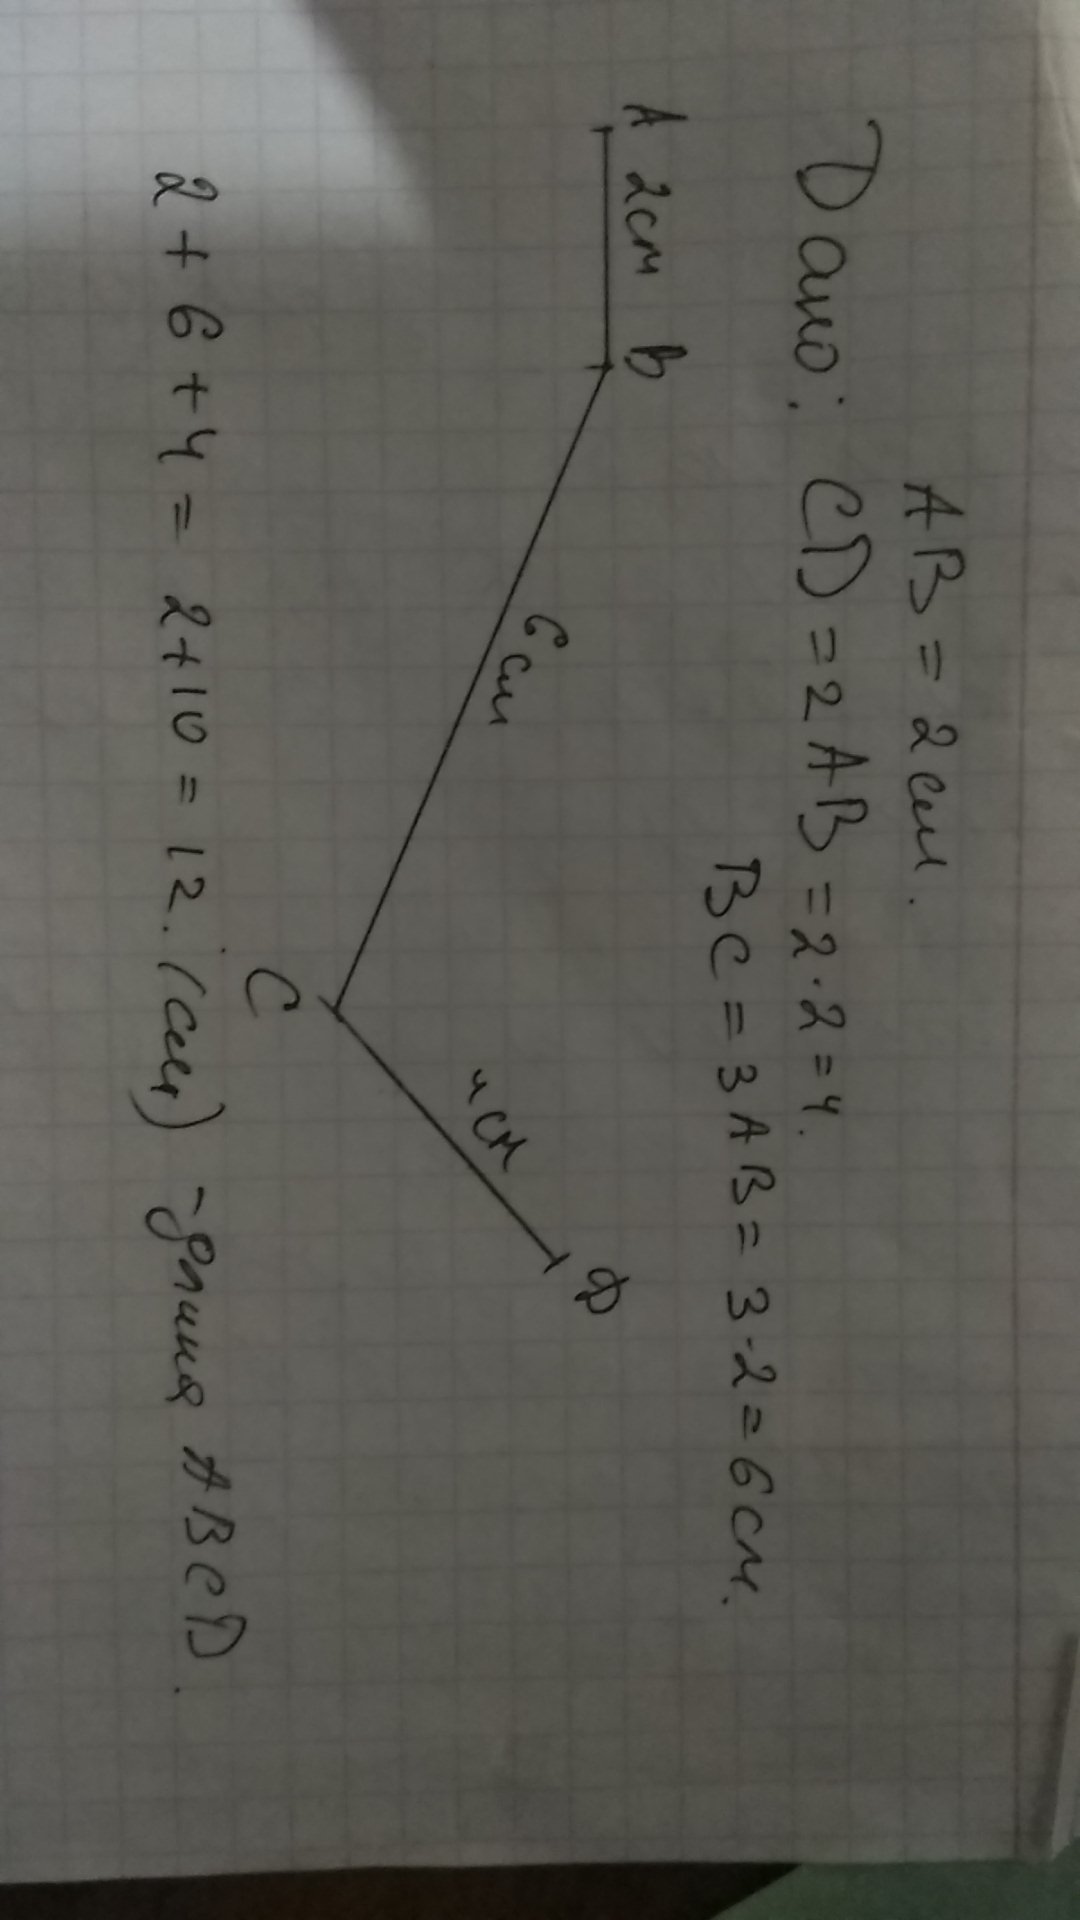 AB = 2см.
Дано: CD = 2AB = 2·2 = 4.
BC = 3AB = 3·2 = 6см.
A 2см B
6см
4см
D
C
2 + 6 + 4 = 2 + 10 = 12. (см) - длина ABCD.